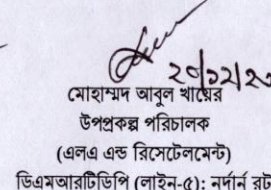 ২০/১২/২০
মোহাম্মদ আবুল খায়ের
উপপ্রকল্প পরিচালক
(এলএ এন্ড রিসেটেলমেন্ট)
ডিএমআরটিডিপি (লাইন-৫): নর্দার্ন রুট